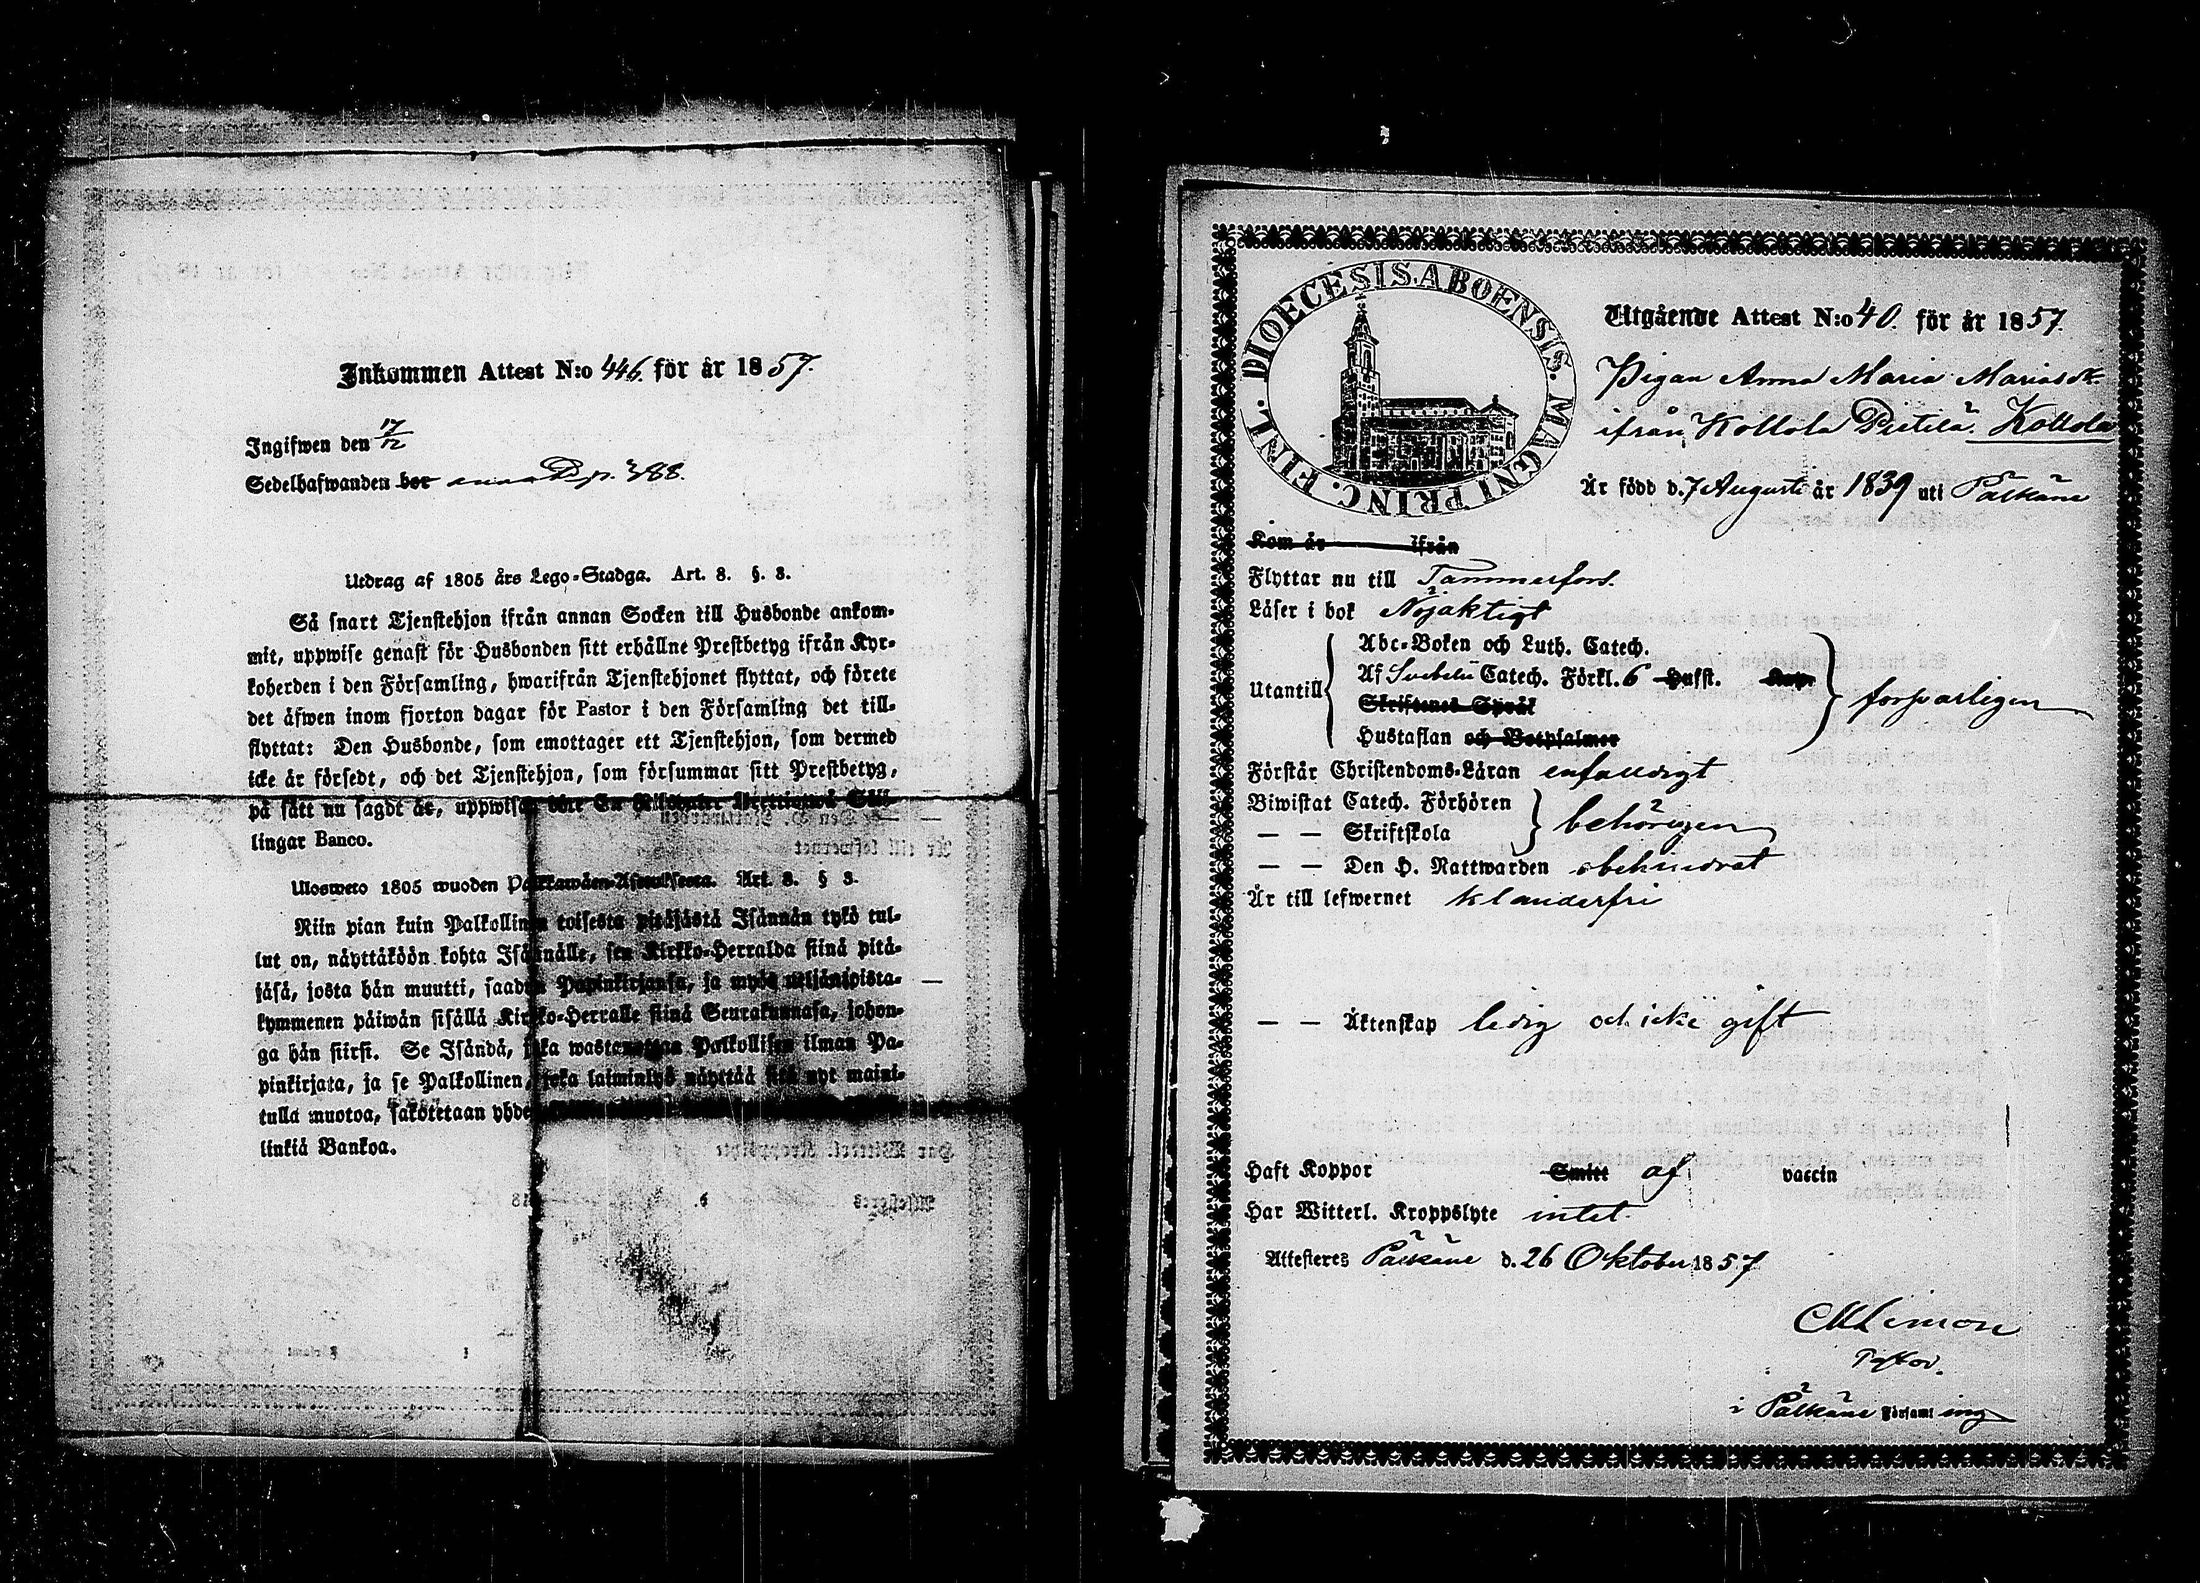 Inkommen Attest N:o 446. för år 1857.
Ingifwen den 17/12
Sedelhafwanden bor p. 388.
Utdrag af 1805 års Lego-Stadga. Art. 8. §. 8.
Så snart Tjenstehjon ifrån annan Socken till Husbonde ankom-
mit, uppwise genast för Husbonden sitt erhållne Prestbetyg ifrån Kyr-
koherden i den Församling, hwarifrån Tjenstehjonet flyttat, och förete
det äfwen inom fjorton dagar för Pastor i den Församling det till-
flyttat: Den Husbonde, som emottager ett Tjenstehjon, som dermed
icke är försedt, och det Tjenstehjon, som försummar sitt Prestbetyg,
på sätt nu sagdt är, uppwisa
lingar Banco.
Ulosweto 1805 wuoden Palkkawäen-Asetuksesta. Art. 8. § 8.
Niin pian kuin Palkollinen toisesta pitäjästä Isännän tykö tul-
lut on, näyttäköön kohta Isännälle, sen Kirkko-Herralda siinä pitä-
jäsä, josta hän muutti, saadun Papinkirjansa, ja myös neljäntoista-
kymmenen päiwän sisällä Kirkko-Herralle siinä Seurakunnasa, johon-
ga hän siirsi. Se Isändä, joka wastanottaa Palkollisen ilman Pa-
pinkirjata, ja se Palkollinen, joka laiminlyö näyttää sitä nyt maini-
tulla muotoa, sakotetaan yhde
linkiä Bankoa.
DIOECESIS. ABOENSIS. MAGNI PRINC. FINL.
Utgående Attest N:o 40. för år 1857.
Pigan Anna Maria Mariasdr
ifrån Kollola Pietilä. Kollola
Är född d. 7 Augusti år 1839 uti Pälkäne
Kom år ifrån
Flyttar nu till Tammerfors.
Läser i bok Nöjaktigt
Utantill
Abc-Boken och Luth. Catech.
Af Svebelii Catech. Förkl. 6 Hufst.
Skriftenes Språk
Hustaflan och Botpsalmer
försvarligen
Förstår Christendoms-Läran enfaldigt
Biwistat Catech. Förhören
— — Skriftskola
behörigen
— — Den H. Nattwarden obehindrat
Är till lefwernet klanderfri
— — Äktenskap ledig och icke gift
Haft Koppor Smitt af vaccin
Har Witterl. Kroppslyte intet.
Attesteres Pälkäne d. 26 Oktober 1857
Pastor.
i Pälkäne Församling